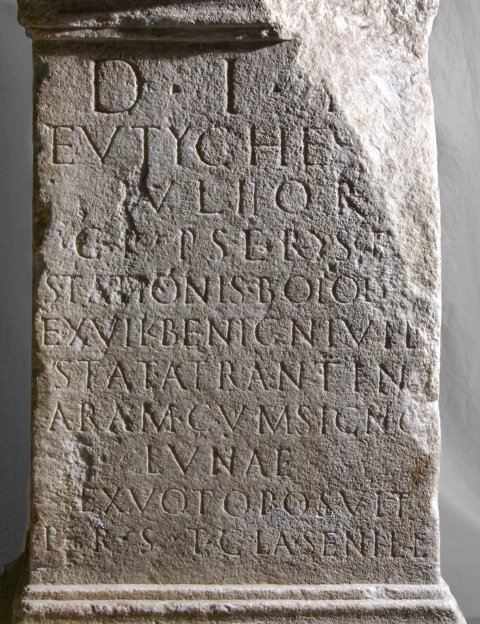 D · I ·
EVTYCHE
IVLIOR
C · P · P SER · )SC
STATIONIS · BOIOD
EX VIK · BENIGNI VIL
STAT ATRANTIN
ARAM CVM SIGNO
LVNAE
EX VOTO POSVIT
P · R · S · T · CLA · SENILL